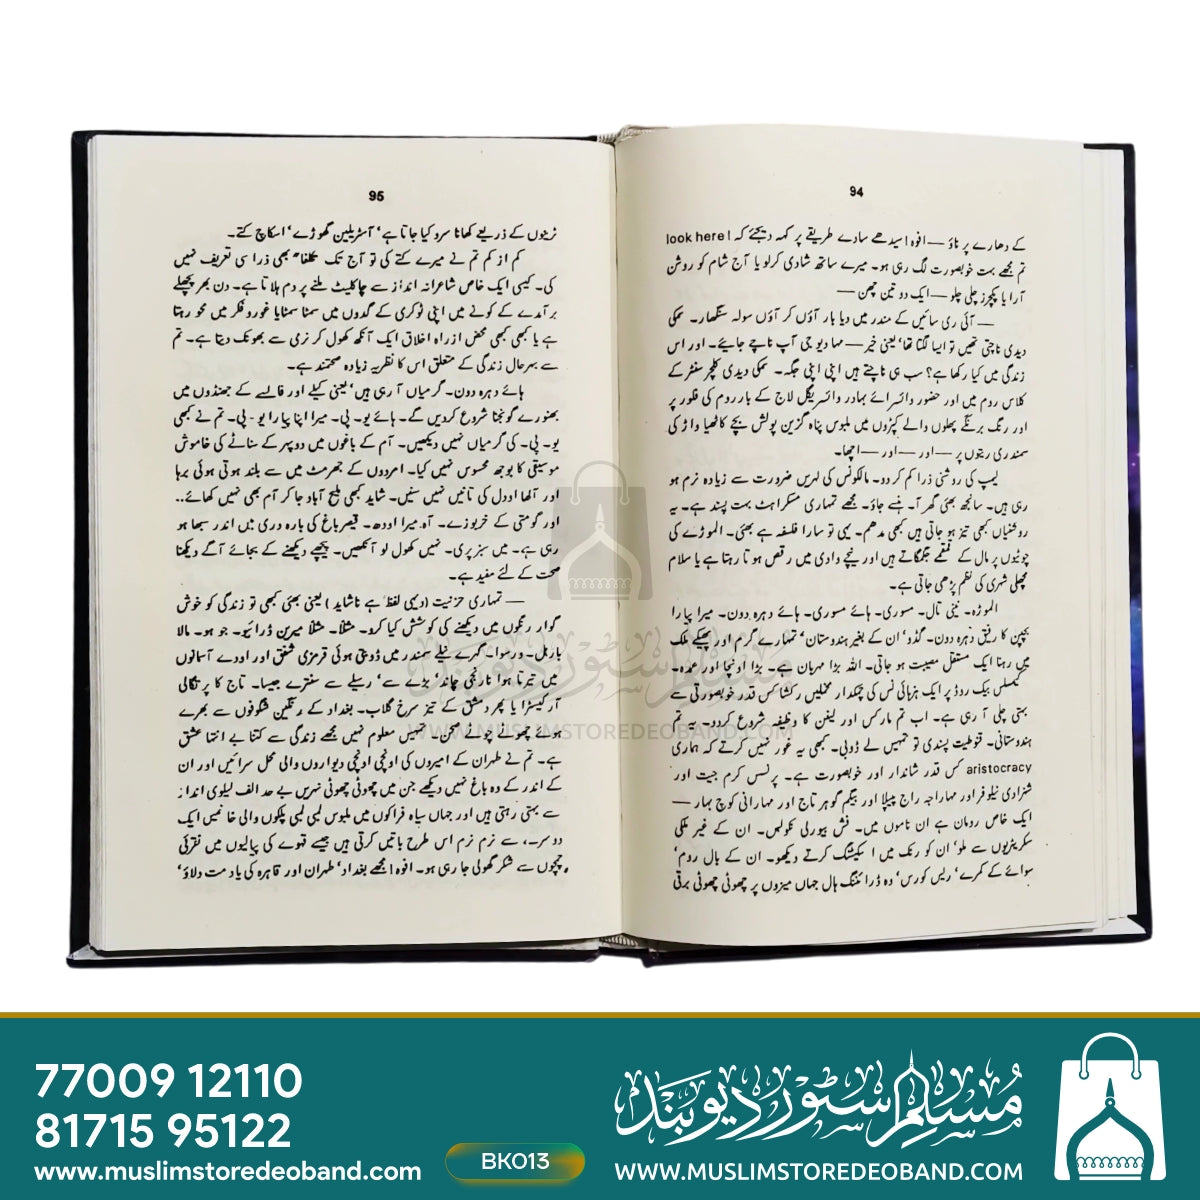 94
کے دھارے پر ناؤ — افوہ! سیدھے سادے طریقے پر کہہ دیجئے کہ look here!
تم مجھے بہت خوبصورت لگ رہی ہو۔ میرے ساتھ شادی کرلو یا آج شام کو روشن
آرا یا پکچرز چلی چلو — ایک دو تین چھن —
— آئی ری سائیں کے مندر میں دیا بار آؤں کر آؤں سولہ سنگھار۔ نمکی
دیدی ناچتی تھیں تو ایسا لگتا تھا‘ یعنی خیر — مہا دیو جی آپ ناچے جائیے۔ اور اس
زندگی میں کیا رکھا ہے؟ سب ہی ناچتے ہیں اپنی اپنی جگہ۔ نمکی دیدی کلچر سنٹر کے
کلاس روم میں اور حضور وائسرائے بہادر وائسریگل لاج کے بار روم کی فلور پر
اور رنگ برنگے پھولوں والے کپڑوں میں ملبوس پناہ گزین پولش بچے کاٹھیا واڑ کی
سمندری ریتوں پر — اور — اور — اچھا۔
لیپ کی روشنی ذرا کم کردو۔ مالکونس کی لہریں ضرورت سے زیادہ نرم ہو
رہی ہیں۔ سانجھ بھئی گھر آ۔ ہنسے جاؤ۔ مجھے تمہاری مسکراہٹ بہت پسند ہے۔ یہ
روشنیاں کبھی تیز ہو جاتی ہیں کبھی مدھم۔ یہی تو سارا فلسفہ ہے بھئی۔ الموڑے کی
چوٹیوں پر مال کے قمقمے جگمگاتے ہیں اور نیچے وادی میں رقص ہوتا رہتا ہے یا سلام
مچھلی شہری کی نظم پڑھی جاتی ہے۔
الموڑہ۔ نینی تال۔ مسوری۔ ہائے مسوری۔ ہائے دہرہ دون۔ میرا پیارا
بچپن کا رفیق دہرہ دون۔ گڈو‘ ان کے بغیر ہندوستان‘ تمہارے گرم اور پھیکے ملک
میں رہنا ایک مستقل مصیبت ہو جاتی۔ اللہ بڑا مہربان ہے۔ بڑا اونچا اور عمدہ۔
کیمپس بیک روڈ پر ایک ہزہائی نس کی چمکدار مخملیں رکشا کس قدر خوبصورتی سے
بہتی چلی آ رہی ہے۔ اب تم مارکس اور لینن کا وظیفہ شروع کردو۔ یہ تم
ہندوستانی۔ قنوطیت پسندی تو تمہیں لے ڈوبی۔ کبھی یہ غور نہیں کرتے کہ ہماری
aristocracy کس قدر شاندار اور خوبصورت ہے۔ پرنسس کرم جیت اور
شہزادی نیلوفر اور مہاراجہ راج پیپلا اور بیگم گوہر تاج اور مہارانی کوچ بہار —
ایک خاص رومان ہے ان ناموں میں۔ فش بیورلی نکولس۔ ان کے غیر ملکی
سکریٹریوں سے ملو‘ ان کو رنک میں اسکیٹنگ کرتے دیکھو۔ ان کے بال روم‘
سوائے کے کمرے‘ ریس کورس‘ وہ ڈرائننگ ہال جہاں میزوں پر چھوٹی چھوٹی برقی
95
ٹرینوں کے ذریعے کھانا سرو کیا جاتا ہے‘ آسٹریلین گھوڑے‘ اسکاچ کتے۔
کم از کم تم نے میرے کتے کی تو آج تک تکلفاً بھی ذرا سی تعریف نہیں
کی۔ کیسی ایک خاص شاعرانہ انداز سے چاکلیٹ ملنے پر دم ہلاتا ہے۔ دن بھر پچھلے
برآمدے کے کونے میں اپنی ٹوکری کے گدوں میں سمٹا سمٹایا غورو فکر میں محو رہتا
ہے یا کبھی کبھی محض از راہ اخلاق ایک آنکھ کھول کر نری سے بھونک دیتا ہے۔ تم
سے بہرحال زندگی کے متعلق اس کا نظریہ زیادہ صحتمند ہے۔
ہائے دہرہ دون۔ گرمیاں آ رہی ہیں‘ یعنی کیلے اور فالسے کے جھنڈوں میں
بھنورے گونجنا شروع کردیں گے۔ ہائے یو۔ پی۔ میرا اپنا پیارا یو۔ پی۔ تم نے کبھی
یو۔ پی۔ کی گرمیاں نہیں دیکھیں۔ آم کے باغوں میں دوپہر کے سناٹے کی خاموش
موسیقی کا بوجھ محسوس نہیں کیا۔ امردوں کے جھرمٹ میں سے بلند ہوتی ہوئی برہا
اور آلھا اودل کی تانیں نہیں سنیں۔ شاید کبھی ملیح آباد جا کر آم بھی نہیں کھائے۔۔
اور گومتی کے خربوزے۔ آہ میرا اودھ۔ قیصر باغ کی بارہ دری میں اندر سبھا ہو
رہی ہے۔ میں سبز پری۔ نہیں کھول لو آنکھیں۔ پیچھے دیکھنے کے بجائے آگے دیکھنا
صحت کے لئے مفید ہے۔
— تمہاری حزنیت (دیہی لفظ ہے نا شاید) یعنی بھئی کبھی تو زندگی کو خوش
گوار رنگوں میں دیکھنے کی کوشش کیا کرو۔ مثلاً۔ مثلاً میرین ڈرائیو۔ جو ہو۔ مالا
بار ہل۔ ورسوا۔ گہرے نیلے سمندر میں ڈوبتی ہوئی قرمزی شفق اور اودے آسمانوں
میں تیرتا ہوا نارنجی چاند‘ بڑے سے‘ رسیلے سے سنترے جیسا۔ تاج کا پرتگالی
آرکیسٹرا یا پھر دمشق کے تیز سرخ گلاب۔ بغداد کے رنگین شگوفوں سے بھرے
ہوئے چھوٹے چھوٹے صحن۔ تمہیں معلوم نہیں مجھے زندگی سے کتنا بے انتہا عشق
ہے۔ تم نے طہران کے امیروں کی اونچی اونچی دیواروں والی محل سرائیں اور ان
کے اندر کے وہ باغ نہیں دیکھے جن میں چھوٹی چھوٹی نہریں بے حد الف لیلوی انداز
سے بہتی رہتی ہیں اور جہاں سیاہ فراکوں میں ملبوس لمبی لمبی پلکوں والی خانمیں ایک
دوسرے سے نرم نرم اس طرح باتیں کرتی ہیں جیسے قہوے کی پیالیوں میں نقرئی
چمچوں سے شکر گھولی جا رہی ہو۔ افوہ! مجھے بغداد‘ طہران اور قاہرہ کی یاد مت دلاؤ‘
مسلم سٹور دیوبند
WWW.MUSLIMSTOREDEOBAND.COM
77009 12110
81715 95122
www.muslimstoredeoband.com
BK013
مسلم سٹور دیوبند
WWW.MUSLIMSTOREDEOBAND.COM